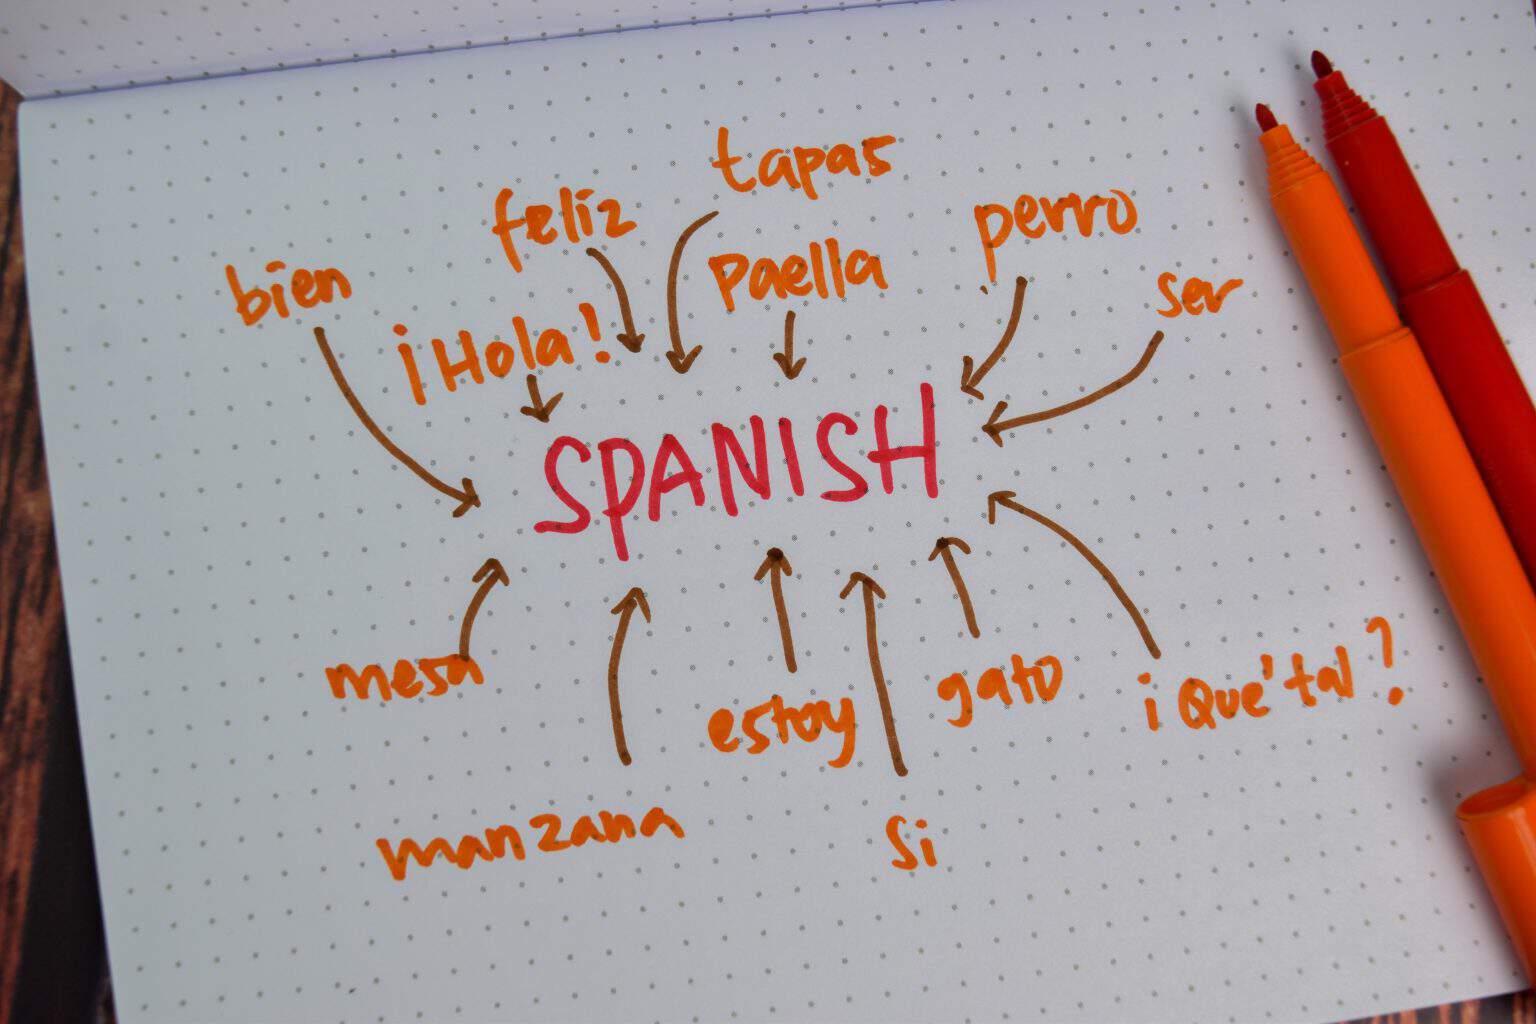 tapas
feliz
perro
bien
paella
ser
¡Hola!
SPANISH
mesa
estoy
gato
¡Qué tal?
manzana
Si